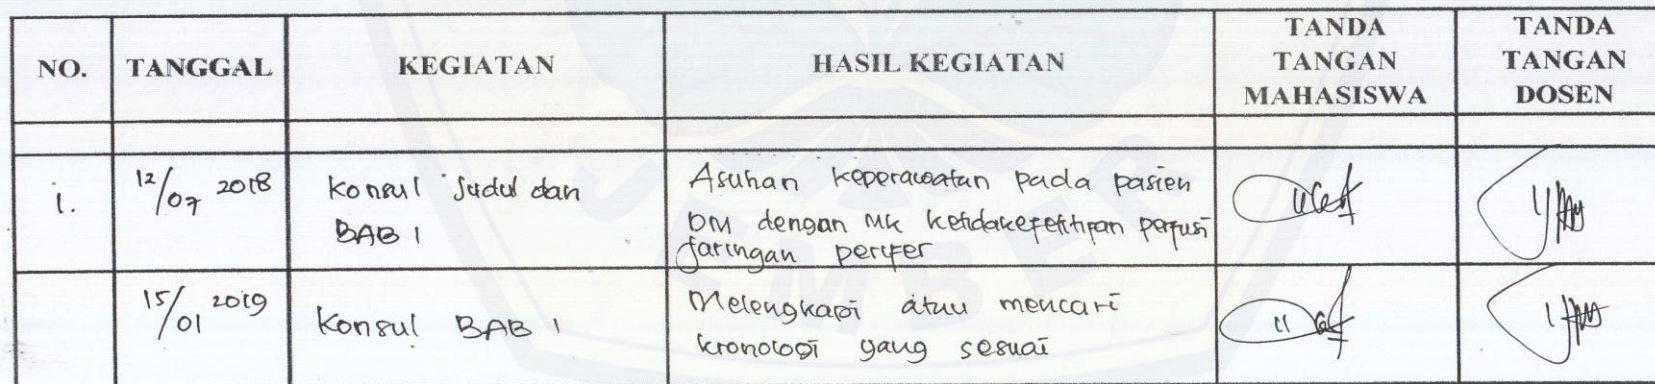 NO. TANGGAL KEGIATAN HASIL KEGIATAN TANDA TANGAN MAHASISWA TANDA TANGAN DOSEN
1. 12/07 2018 Konsul Judul dan Asuhan keperawatan pada pasien
BAB 1 DM dengan MK ketidakefektifan perfusi
jaringan perifer
15/01 2019 Konsul BAB 1 Melengkapi atau mencari
kronologi yang sesuai
JEMBER